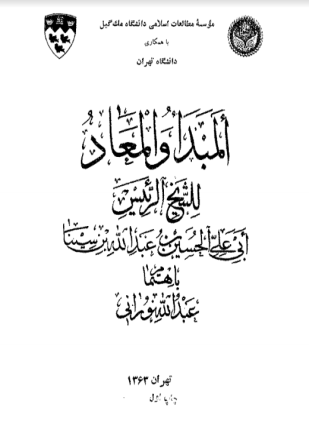 مؤسسهٔ مطالعات اسلامی دانشگاه مك گیل
با همکاری
دانشگاه تهران
ألمَبْدَأ وَالْمَعَادُ
لِلشَّيْخِ الرَّئِيسِ
أَبِي عَلِيّ الْحُسَيْنِ بْنِ عَبْدِ اللّٰهِ بْنِ سِينَا
بِاهتمام
عبدُاللّٰه نورانی
تهران ۱۳۶۳
چاپ اول